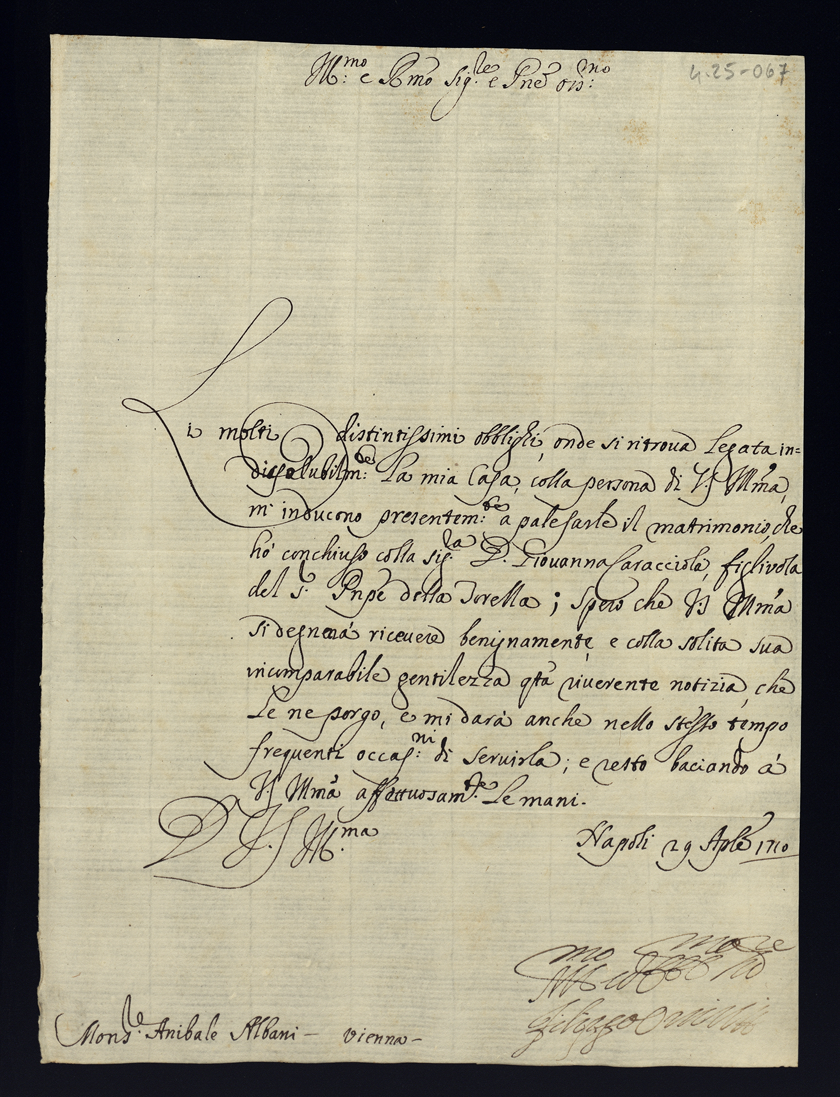 4-25-067
Ill:mo e Rmo Sig:re e Pñe oss:mo
Li molti distintissimi oblighi, onde si ritroua legata in=
dissolubilm:te la mia Casa, colla persona di VS Illma,
m'inducono presentem:te a palesarle il matrimonio, che
hò conchiuso colla sig:ra D. Giouanna Caracciola, figliuola
del S.r Pnpe della Torella; spero che VS Illma
si degnerà riceuere benignamente, e colla solita sua
incomparabile gentilezza qta riuerente notizia, che
Le ne porgo, e mi darà anche nello stesso tempo
frequenti occas:ni di seruirla; e resto baciando à
VS Illma affettuosam:te le mani.
D. V.S. Ill:ma
Napoli 29 Aple 1710
Mons:re Anibale Albani - Vienna -